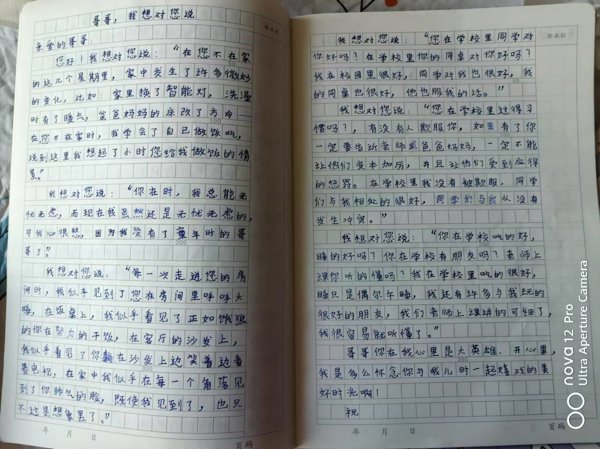 哥哥，我想对您说
亲爱的哥哥：
您好！我想对您说：“在您不在家
的这几个星期里，家中发生了许多微妙
的变化，比如：家里换了智能灯，洗澡
时有了暖气，爸爸妈妈的床改了方向……
在您不在家时，我学会了自己做饭吃，
说到这里我想起了小时您给我做饭的情
景。”
我想对您说：“你在时，我总能无
忧无虑，而现在我虽然还是无忧无虑的，
可我心很愁，因为我没有了童年时的哥
哥了。”
我想对您说：“每一次走进您的房
间时，我似乎见到了您在房间里呼呼大
睡，在饭桌上，我似乎看见了正如饿狼
的你在努力的干饭，在客厅的沙发上，
我似乎看见了你躺在沙发上边笑着边看
着电视，在家中我似乎在每一个角落见
到了你帅气的脸，既使我见到了，也只
不过是想象罢了。”
年 月 日
页码
我想对您说：“您在学校里同学对
你好吗？在学校里你的同桌对你好吗？
我在校园里很好，同学对我也很好，我
的同桌也很好，他也听我的话。”
我想对您说：“您在学校里过得习
惯吗？，有没有人欺服你，如果有了你
一定要告诉老师或爸爸妈妈，一定不能
让他们变本加厉，并且让他们受到应得
的惩罚。在学校里我没有被欺服，同学
们与我相处的很好，同学们与我从没有
发生冲突。”
我想对您说：“你在学校吃的好，
睡的好吗？你在学校有朋友吗？老师上
课你听的懂吗？我在学校里吃的很好，
睡只是偶尔午睡，我还有许多与我玩的
很好的朋友，我们老师上课讲的可细了，
我很容易就听懂了。”
哥哥你在我心里是大英雄、开心果，
我是多么怀念你与我儿时一起嬉戏的美
好时光啊！
祝
年 月 日
页码
nova 12 Pro
Ultra Aperture Camera